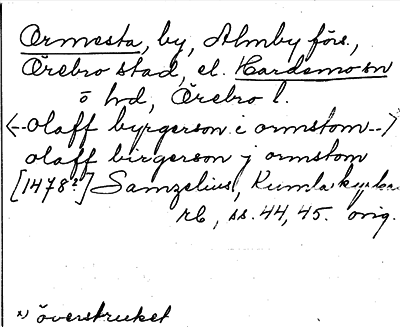 Ormesta, by, Almby förs.,
Örebro stad, el. Hardemo sn
o hd, Örebro l.
<--olaff byrgerson i ormstom-->
olaff birgerson j ormstom
[1478?] Samzelius, Kumla kyrkas
rb, ss. 44, 45. orig.
överstruket